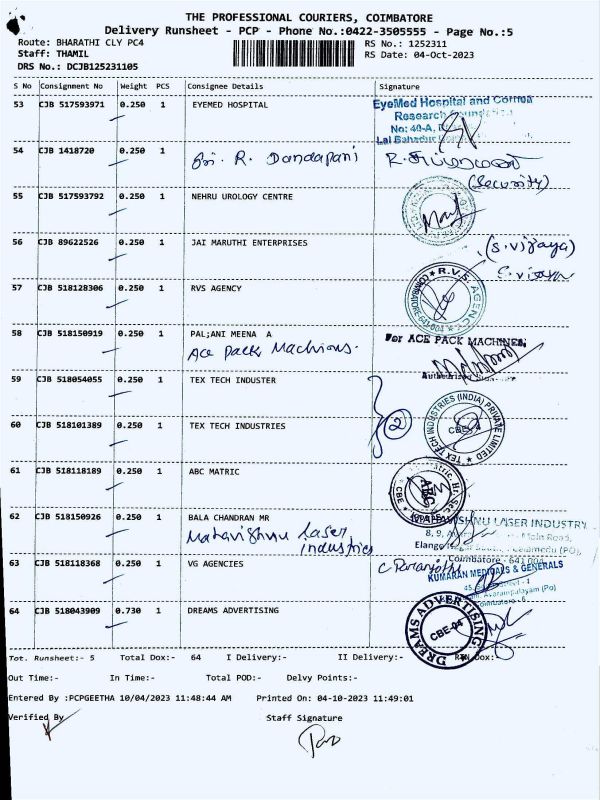 THE PROFESSIONAL COURIERS, COIMBATORE
Delivery Runsheet - PCP - Phone No.:0422-3505555 - Page No.:5
Route: BHARATHI CLY PC4 RS No.: 1252311
Staff: THAMIL RS Date: 04-Oct-2023
DRS No.: DCJB125231105
S No Consignment No Weight PCS Consignee Details Signature
53 CJB 517593971 0.250 1 EYEMED HOSPITAL
EyeMed Hospital and
Research
No: 40-A,
Lal Bahadur
54 CJB 1418720 0.250 1 R. Dandapani
(Security)
55 CJB 517593792 0.250 1 NEHRU UROLOGY CENTRE
56 CJB 89622526 0.250 1 JAI MARUTHI ENTERPRISES (S. vijaya)
57 CJB 518128306 0.250 1 RVS AGENCY
R.V.S. AGENCY COIMBATORE-641 004
58 CJB 518150919 0.250 1 PAL;ANI MEENA A For ACE PACK MACHINES,
Ace Pack Machions.
59 CJB 518054055 0.250 1 TEX TECH INDUSTER
60 CJB 518101389 0.250 1 TEX TECH INDUSTRIES 2
TEX TECH INDUSTRIES (INDIA) PRIVATE LIMITED CBE-4
61 CJB 518118189 0.250 1 ABC MATRIC
ABC Matric. Hr. Sec. CBE
62 CJB 518150926 0.250 1 BALA CHANDRAN MR LASER INDUSTRY
Mahavishnu Laser
industries
8, 9, Main Road,
Elango
Coimbatore - 641 004
63 CJB 518118368 0.250 1 VG AGENCIES
KUMARAN MEDICALS & GENERALS
Avarampalayam (Po)
Coimbatore - 6
64 CJB 518043909 0.730 1 DREAMS ADVERTISING
DREAMS ADVERTISING CBE-04
Tot. Runsheet:- 5 Total Dox:- 64 I Delivery:- II Delivery:- RTN Dox:-
Out Time:- In Time:- Total POD:- Delvy Points:-
Entered By :PCPGEETHA 10/04/2023 11:48:44 AM Printed On: 04-10-2023 11:49:01
Verified By Staff Signature